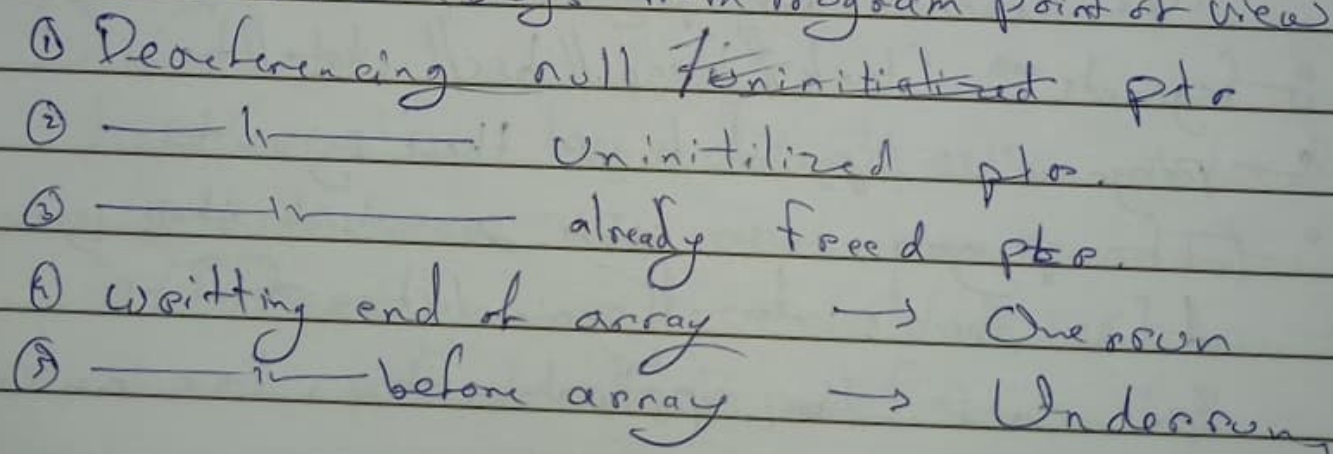 in program point of view
① Dereferencing null / uninitialized ptr
② —— 〃 —— uninitilized ptr.
③ —— 〃 —— already freed ptr.
④ writting end of array → Overrun
⑤ —— 〃 —— before array → Underrun